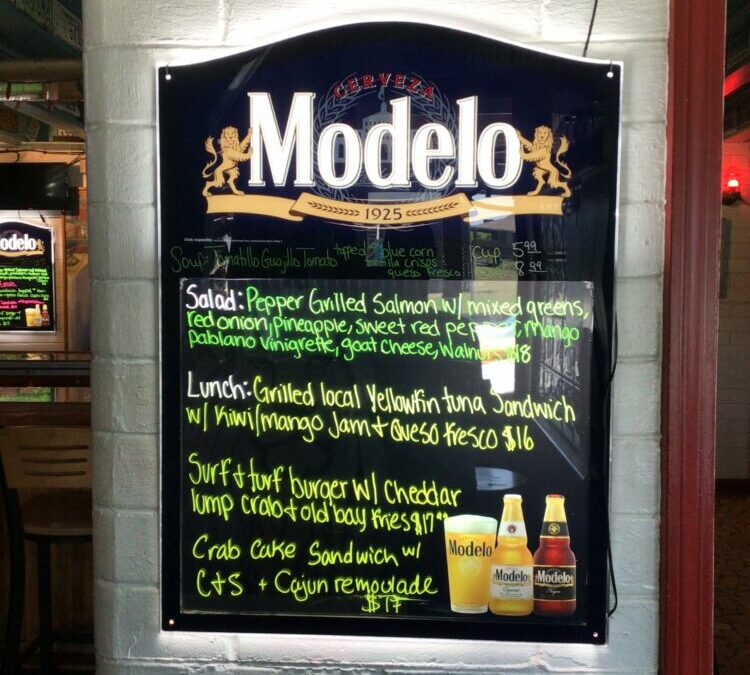 CERVEZA
Modelo
1925
Soup: Tomatillo Guajillo Tomato topped blue corn
tortilla crisps
queso fresco
Cup 5.99
8.99
Salad: Pepper Grilled Salmon w/ mixed greens,
red onion, pineapple, sweet red pepper, mango
pablano vinigrette, goat cheese, walnuts $18
Lunch: Grilled local Yellowfin tuna Sandwich
w/ Kiwi/mango Jam + Queso fresco $16
Surf + turf burger w/ Cheddar
lump crab + old bay fries $17.99
Crab Cake Sandwich w/
C+S + Cajun remoulade
$17
Modelo
Modelo
Modelo
Modelo